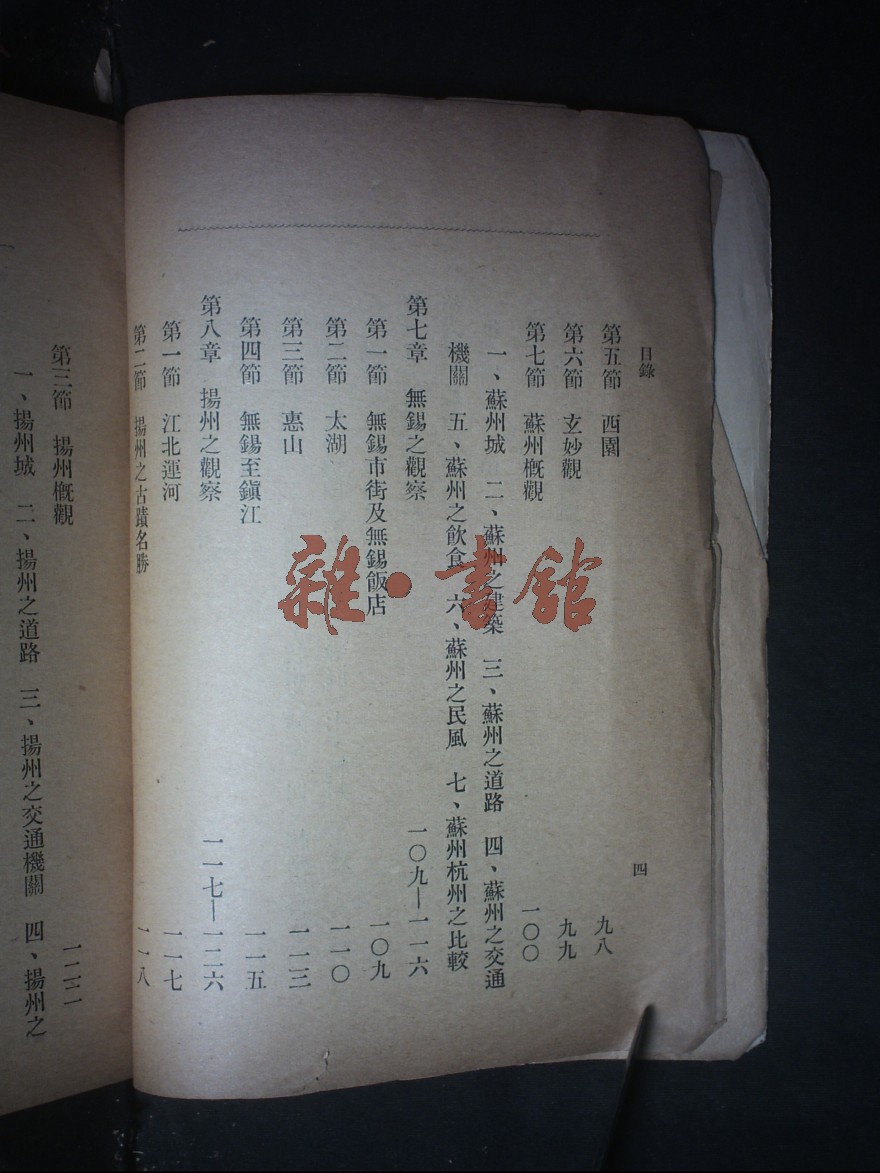 目錄
四
第五節 西園 九八
第六節 玄妙觀 九九
第七節 蘇州槪觀 一〇〇
一、蘇州城 二、蘇州之建築 三、蘇州之道路 四、蘇州之交通
機關 五、蘇州之飮食 六、蘇州之民風 七、蘇州杭州之比較
第七章 無錫之觀察 一〇九—一一六
第一節 無錫市街及無錫飯店 一〇九
第二節 太湖 一一〇
第三節 惠山 一一三
第四節 無錫至鎭江 一一五
第八章 揚州之觀察 一一七—一二六
第一節 江北運河 一一七
第二節 揚州之古蹟名勝 一一八
第三節 揚州槪觀 一二二
一、揚州城 二、揚州之道路 三、揚州之交通機關 四、揚州之
雜·書館